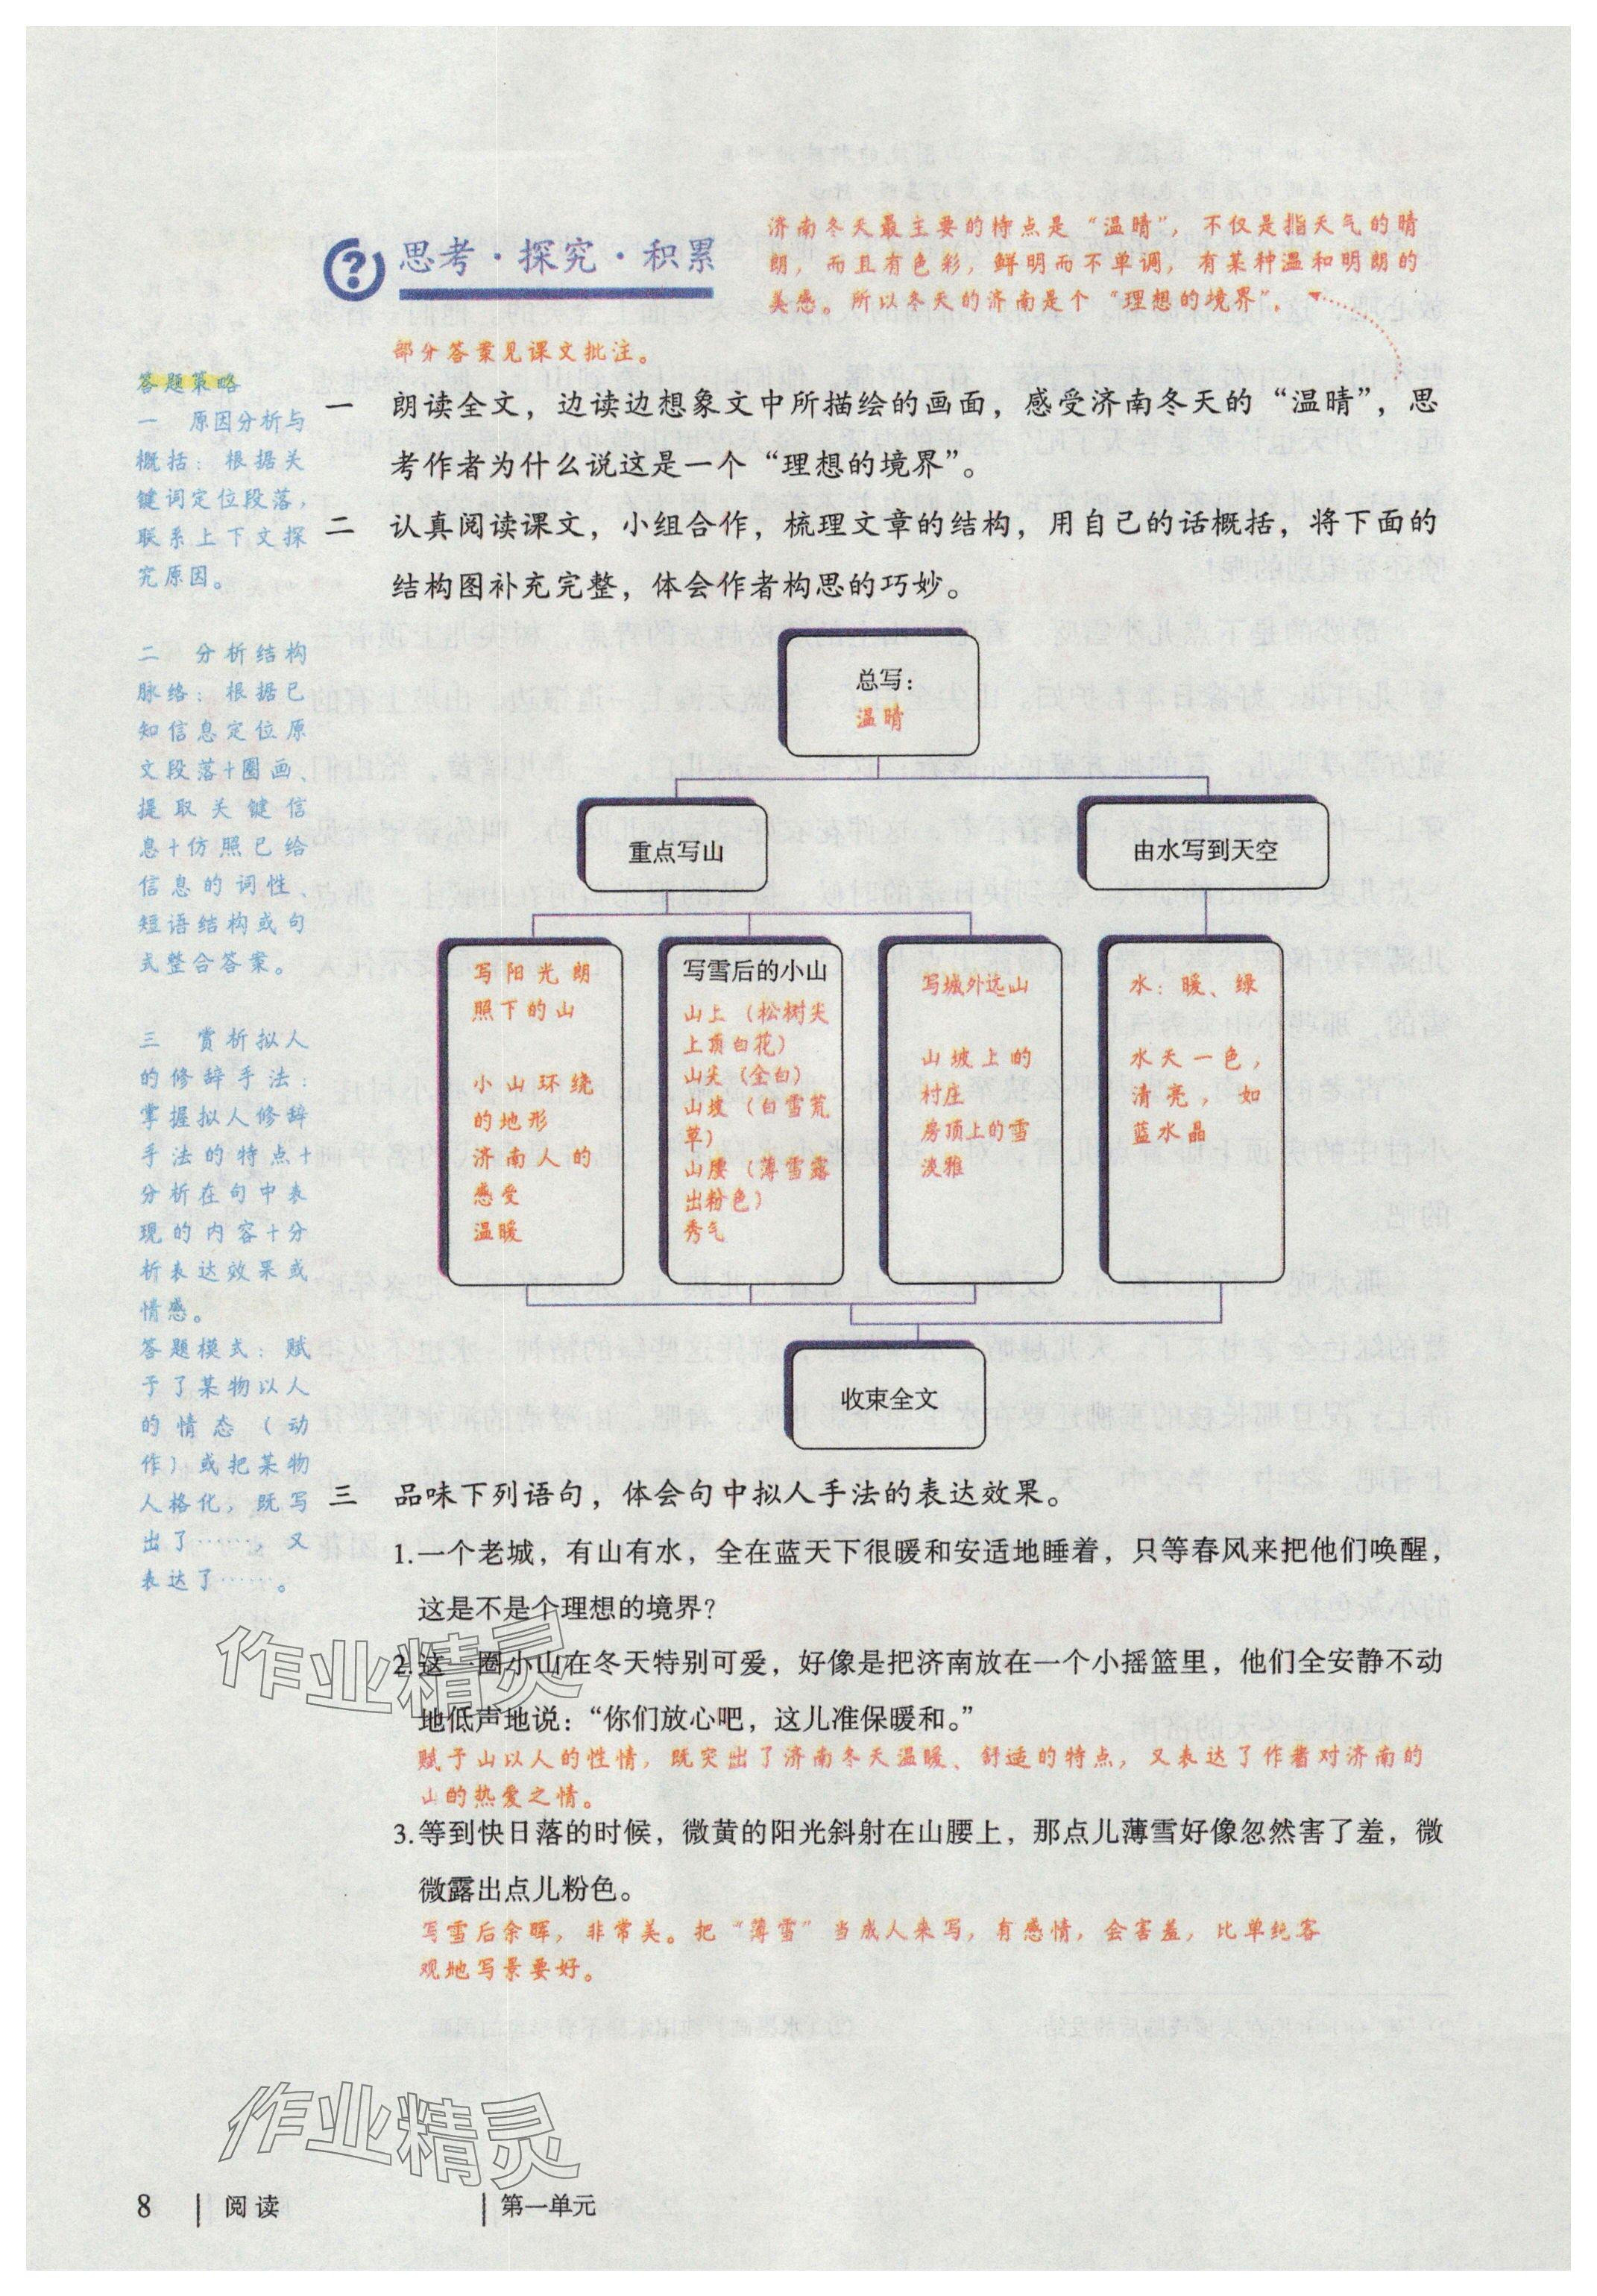 思考·探究·积累
济南冬天最主要的特点是“温晴”，不仅是指天气的晴
朗，而且有色彩，鲜明而不单调，有某种温和明朗的
美感。所以冬天的济南是个“理想的境界”。
部分答案见课文批注。
答题策略
一 原因分析与
概括：根据关
键词定位段落，
联系上下文探
究原因。
二 分析结构
脉络：根据已
知信息定位原
文段落+圈画、
提取关键信
息+仿照已给
信息的词性、
短语结构或句
式整合答案。
三 赏析拟人
的修辞手法：
掌握拟人修辞
手法的特点+
分析在句中表
现的内容+分
析表达效果或
情感。
答题模式：赋
予了某物以人
的情态（动
作）或把某物
人格化，既写
出了……，又
表达了……。
一 朗读全文，边读边想象文中所描绘的画面，感受济南冬天的“温晴”，思
考作者为什么说这是一个“理想的境界”。
二 认真阅读课文，小组合作，梳理文章的结构，用自己的话概括，将下面的
结构图补充完整，体会作者构思的巧妙。
总写：
温晴
重点写山
由水写到天空
写阳光朗
照下的山
小山环绕
的地形
济南人的
感受
温暖
写雪后的小山
山上（松树尖
上顶白花）
山尖（全白）
山坡（白雪荒
草）
山腰（薄雪露
出粉色）
秀气
写城外远山
山坡上的
村庄
房顶上的雪
淡雅
水：暖、绿
水天一色，
清亮，如
蓝水晶
收束全文
三 品味下列语句，体会句中拟人手法的表达效果。
1.一个老城，有山有水，全在蓝天下很暖和安适地睡着，只等春风来把他们唤醒，
这是不是个理想的境界？
2.这一圈小山在冬天特别可爱，好像是把济南放在一个小摇篮里，他们全安静不动
地低声地说：“你们放心吧，这儿准保暖和。”
赋予山以人的性情，既突出了济南冬天温暖、舒适的特点，又表达了作者对济南的
山的热爱之情。
3.等到快日落的时候，微黄的阳光斜射在山腰上，那点儿薄雪好像忽然害了羞，微
微露出点儿粉色。
写雪后余晖，非常美。把“薄雪”当成人来写，有感情，会害羞，比单纯客
观地写景要好。
作业精灵
作业精灵
8 阅读 第一单元